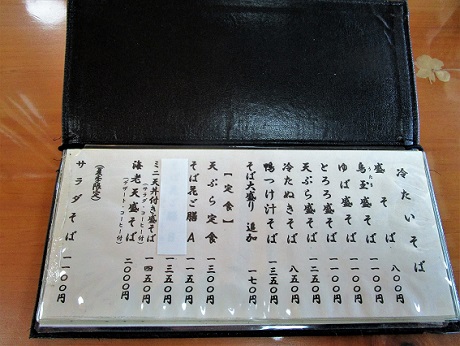 冷たいそば
盛そば 八〇〇円
ゆば盛そば 一一〇〇円
とろろ盛そば 一一〇〇円
天ぷら盛そば 一二五〇円
冷たぬきそば 八五〇円
鴨つけ汁そば 一三五〇円
そば大盛り 追加 一七〇円
【定食】
天ぷら定食 一三〇〇円
そば花ご膳 A 一一五〇円
一三五〇円
ミニ天丼付き盛そば 一四五〇円
(サラダ・コーヒー付)
海老天盛そば 二〇〇〇円
(デザート・コーヒー付)
(夏季限定)
サラダそば 一一〇〇円